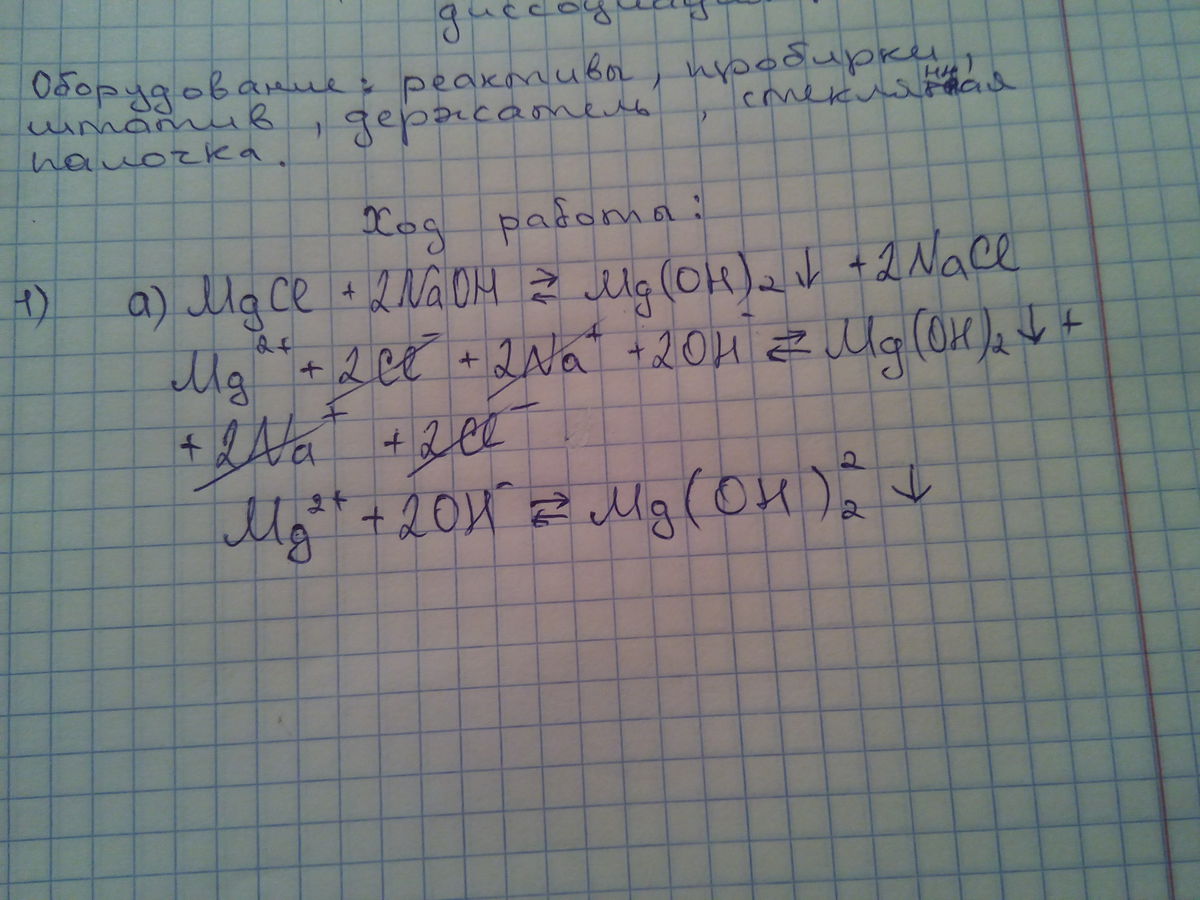 диссоциации
Оборудование: реактивы, пробирки,
штатив, держатель, стеклянная
палочка.
Ход работы:
1) а) MgCl + 2NaOH ⇄ Mg(OH)₂↓ + 2NaCl
Mg²⁺ + 2Cl⁻ + 2Na⁺ + 2OH⁻ ⇄ Mg(OH)₂↓ +
+ 2Na⁺ + 2Cl⁻
Mg²⁺ + 2OH⁻ ⇄ Mg(OH)₂² ↓